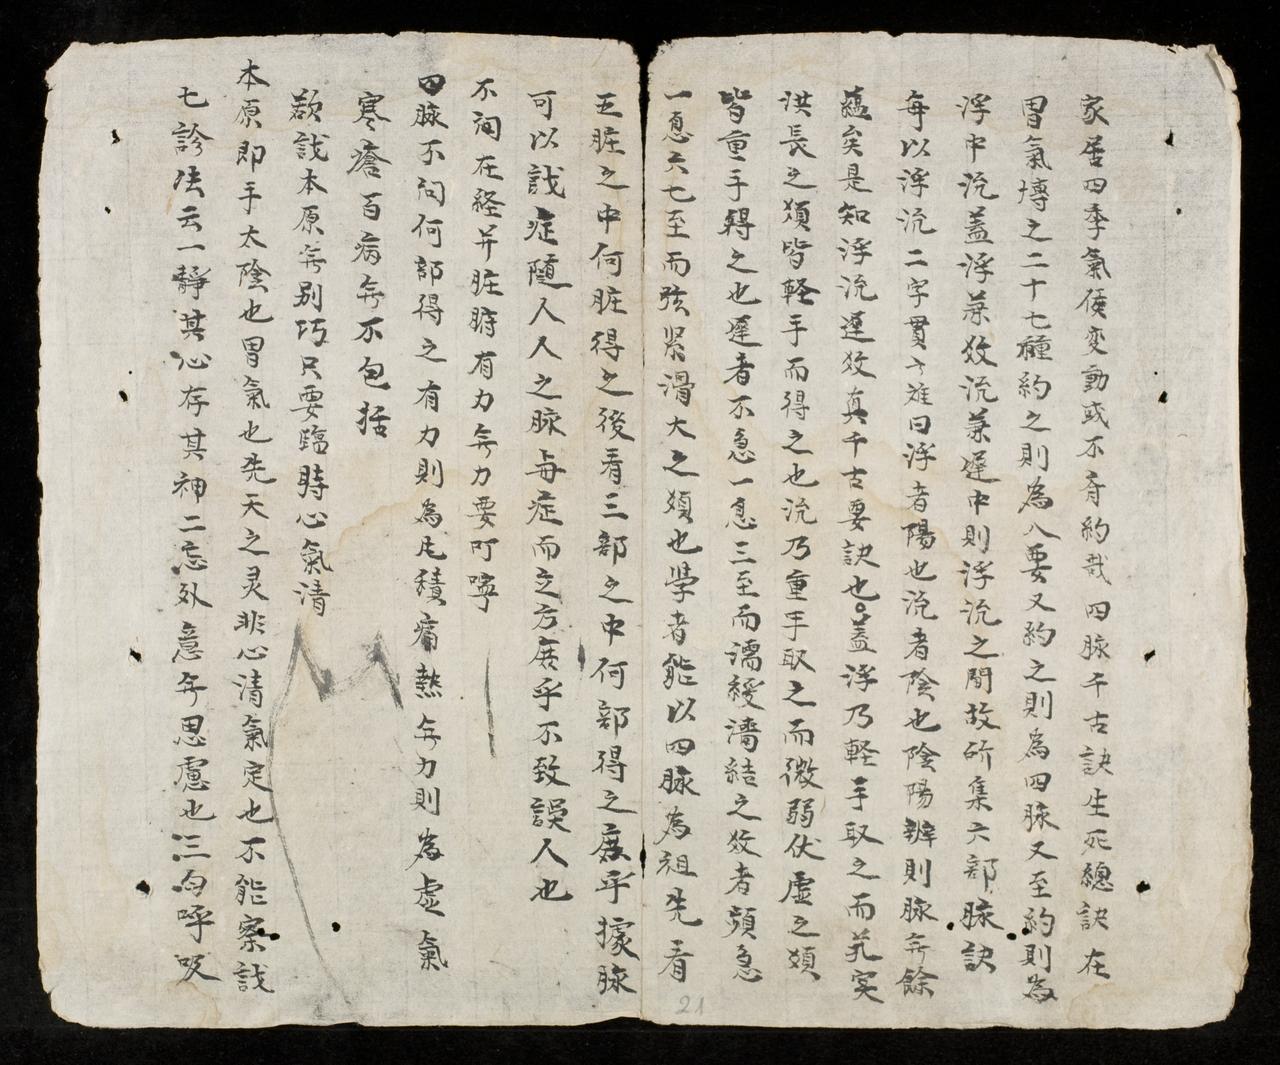 家居四季氣候变動或不奇約哉四脉千古訣生死總訣在
胃氣塼之二十七種約之則為八要又約之則為四脉又至約則為
浮中沉盖浮兼效沉兼遅中則浮沉之間故所集六部脉訣
每以浮沉二字貫之难曰浮者陽也沉者陰也陰陽辨則脉无餘
蘊矣是知浮沉遅效真千古要訣也。盖浮乃軽手取之而芤实
洪長之類皆軽手而得之也沉乃重手取之而微弱伏虚之類
皆重手得之也遅者不急一息三至而濡緩濇結之效者頻急
一息六七至而弦紧滑大之類也學者能以四脉為祖先看
五脏之中何脏得之後看三部之中何部得之庻乎據脉
可以說症随人人之脉毎症而立方庻乎不致誤人也
不问在経并脏腑有力无力要叮嚀
四脉不问何部得之有力則為 積痛熱无力則為虚氣
寒瘡百病无不包括
欲說本原无别巧只要臨時心氣清
本原即手太陰也胃氣也先天之灵非心清氣定也不能察識
七診法云一静其心存其神二忘外意无思慮也三匀呼吸
21